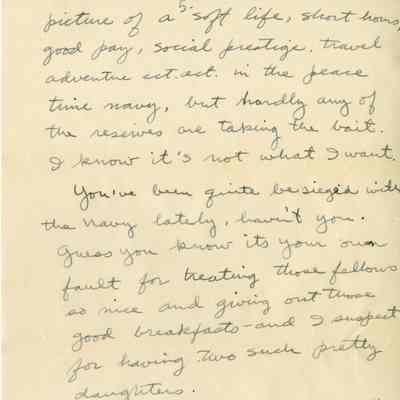 5.
picture of a soft life, short hours,
good pay, social prestige, travel
adventure ect. ect. in the peace
time navy, but hardly any of
the reserves are taking the bait.
I know it's not what I want.
You've been quite besieged with
the Navy lately, haven't you.
Guess you know its your own
fault for treating those fellows
so nice and giving out those
good breakfasts - and I suspect
for having two such pretty
daughters.